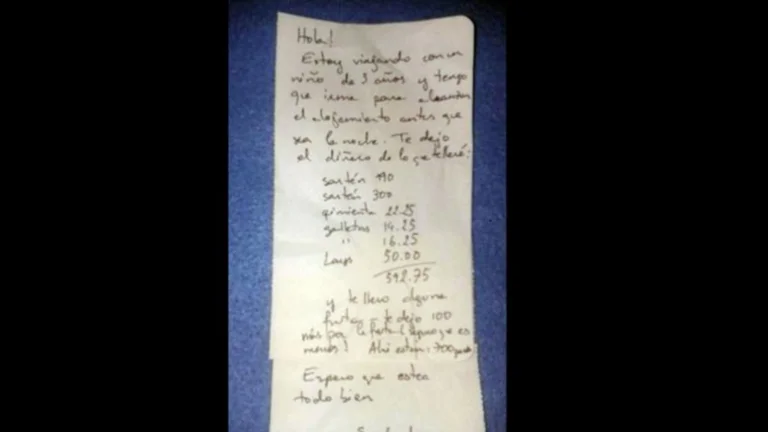 Hola!
Estoy viajando con un
niño de 3 años y tengo
que irme para alcanzar
el alojamiento antes que
sea la noche. Te dejo
el dinero de lo que llevé:
sartén 190
sartén 300
pimienta 22.25
galletas 14.25
" 16.25
50.00
592.75
y te llevo alguna
fruta, te dejo 100
más por la fruta (seguro que es
menos! Ahí están: 700
Espero que estea
todo bien